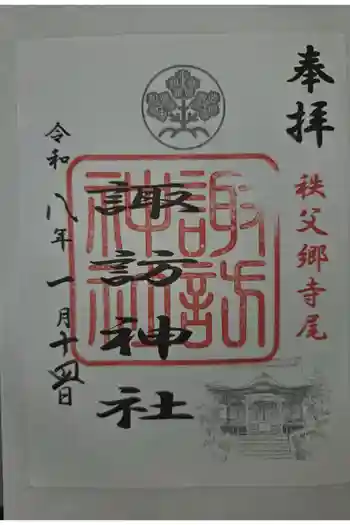 奉拝
秩父郷寺尾
諏訪神社
諏訪神社
令和八年一月十四日